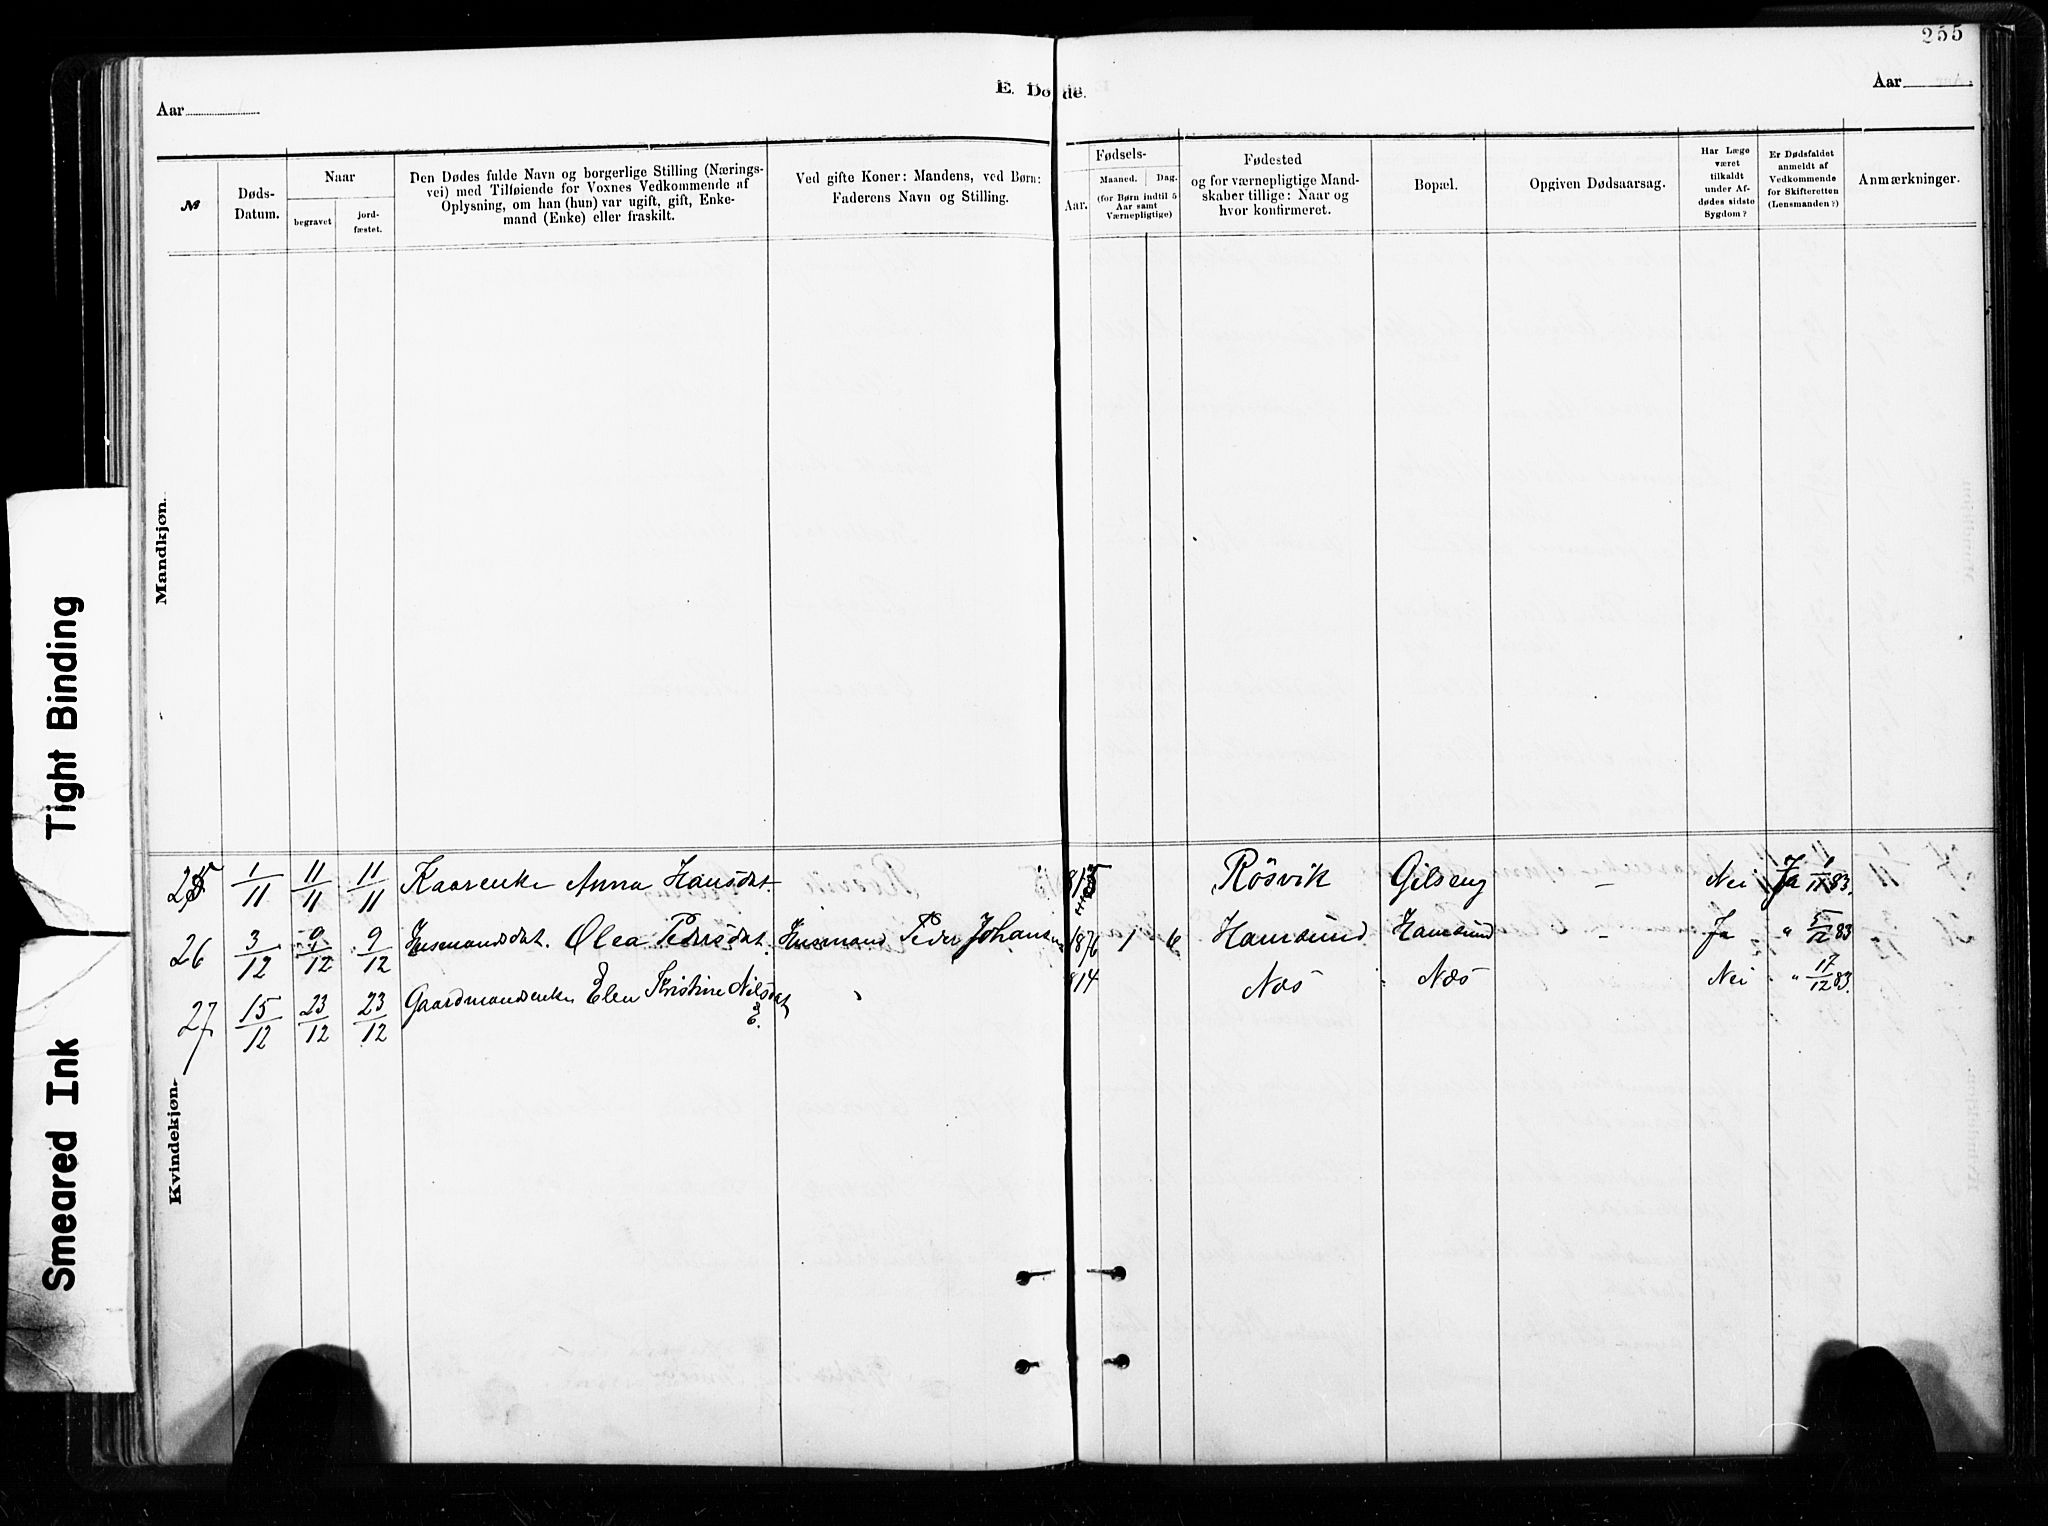 255
Aar
E. Døde.
Aar
№
Døds-
Datum.
Naar
begravet
jord-
fæstet.
Den Dødes fulde Navn og borgerlige Stilling (Nærings-
vei) med Tilføiende for Voxnes Vedkommende af
Oplysning, om han (hun) var ugift, gift, Enke-
mand (Enke) eller fraskilt.
Ved gifte Koner: Mandens, ved Børn:
Faderens Navn og Stilling.
Fødsels-
Aar.
Maaned.
Dag.
(for Børn indtil 5
Aar samt
Værnepligtige)
Fødested
og for værnepligtige Mand-
skaber tillige: Naar og
hvor konfirmeret.
Bopæl.
Opgiven Dødsaarsag.
Har Læge
været
tilkaldt
under Af-
dødes sidste
Sygdom?
Er Dødsfaldet
anmeldt af
Vedkommende
for Skifteretten
(Lensmanden?)
Anmærkninger.
Mandkjøn.
25 1/11 11/11 11/11 Kaarenke Anna Hansdat. Rösvik Gilseng – Nei Ja 1/11 83.
26 3/12 9/12 9/12 Husmandsdat. Olea Pedersdat. Husmand Peder Johansen 1876 1 6 Hamsund Hamsund – Ja " 5/12 83
27 15/12 23/12 23/12 Gaardmandsenke Elen Kristine Nilsdat. 814 Næs Næs Nei " 17/12 83.
Kvindekjøn.
Tight Binding
Smeared Ink